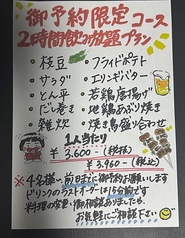 御予約限定コース
2時間飲み放題プラン
・枝豆 ・フライドポテト
・サラダ ・エリンギバター
・とん平 ・若鶏唐揚げ
・だし巻き ・地鶏あぶり焼き
・雑炊 ・焼き鳥盛り合わせ
1人当たり
¥3,600-(税抜)
¥3,960-(税込)
※4名様〜、前日までに御予約お願いします
ドリンクのラストオーダーは15分前です
料理の変更・御相談ありましたら、
お気軽にご相談下さい。